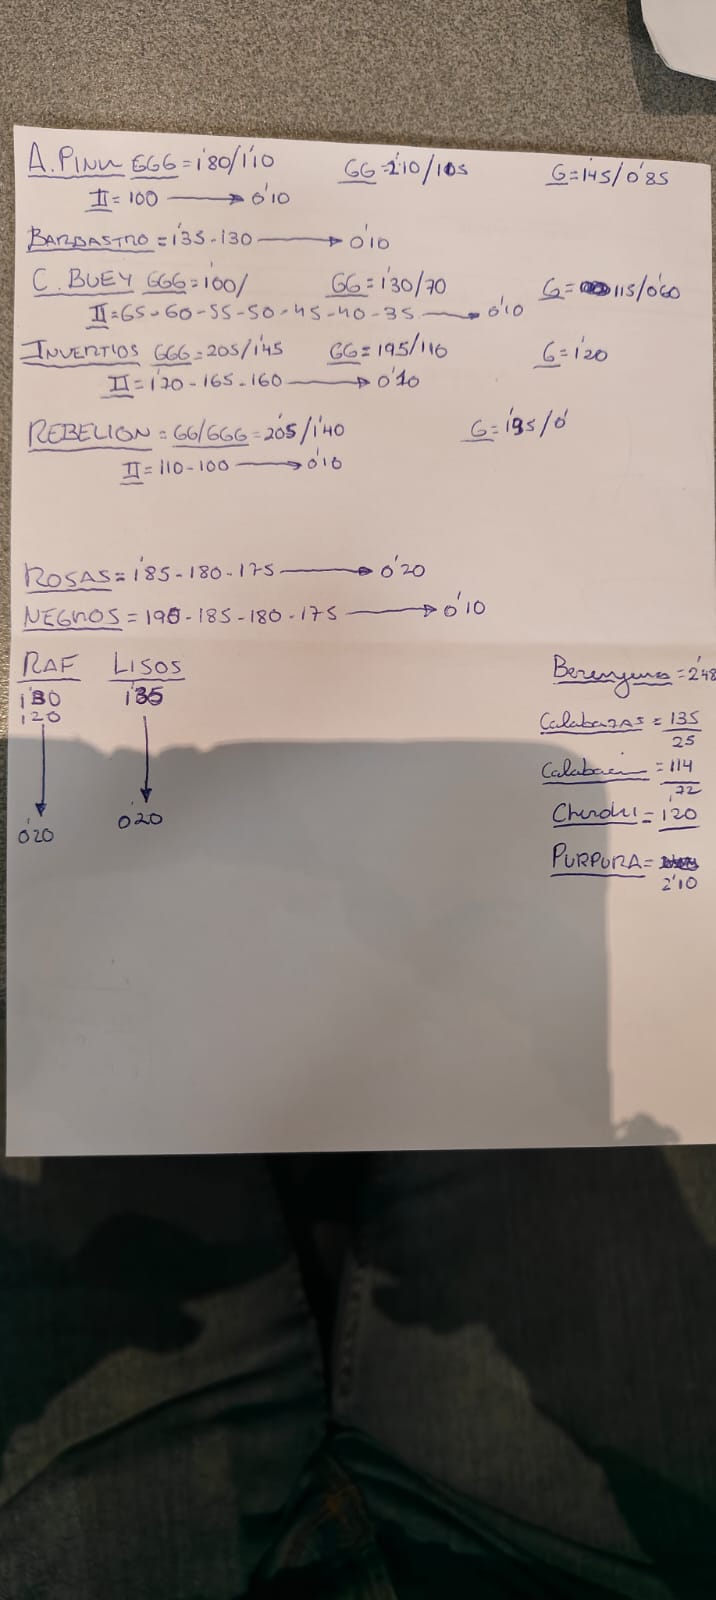 A. PINK GGG = 1'80/1'10 GG = 2'10/105 G = 1'45/0'85
II = 100 → 0'10
BARBASTRO = 1'35 - 130 → 0'10
C. BUEY GGG = 1'00/ GG = 1'30/70 G = 115/0'60
II = 65 - 60 - 55 - 50 - 45 - 40 - 35 → 0'10
INVERTIOS GGG = 205/1'45 GG = 195/110 G = 1'20
II = 1'70 - 165 - 160 → 0'10
REBELION = GG/GGG = 2'05/1'40 G = 1'95/0'
II = 110 - 100 → 0'10
ROSAS = 1'85 - 180 - 175 → 0'20
NEGROS = 190 - 185 - 180 - 175 → 0'10
RAF LISOS
1'30 1'35
1'20
↓ ↓
0'20 0'20
Berenjena = 2'48
CalabazAS = 135
25
Calabacin = 114
'72
= 1'20
PURPURA =
2'10